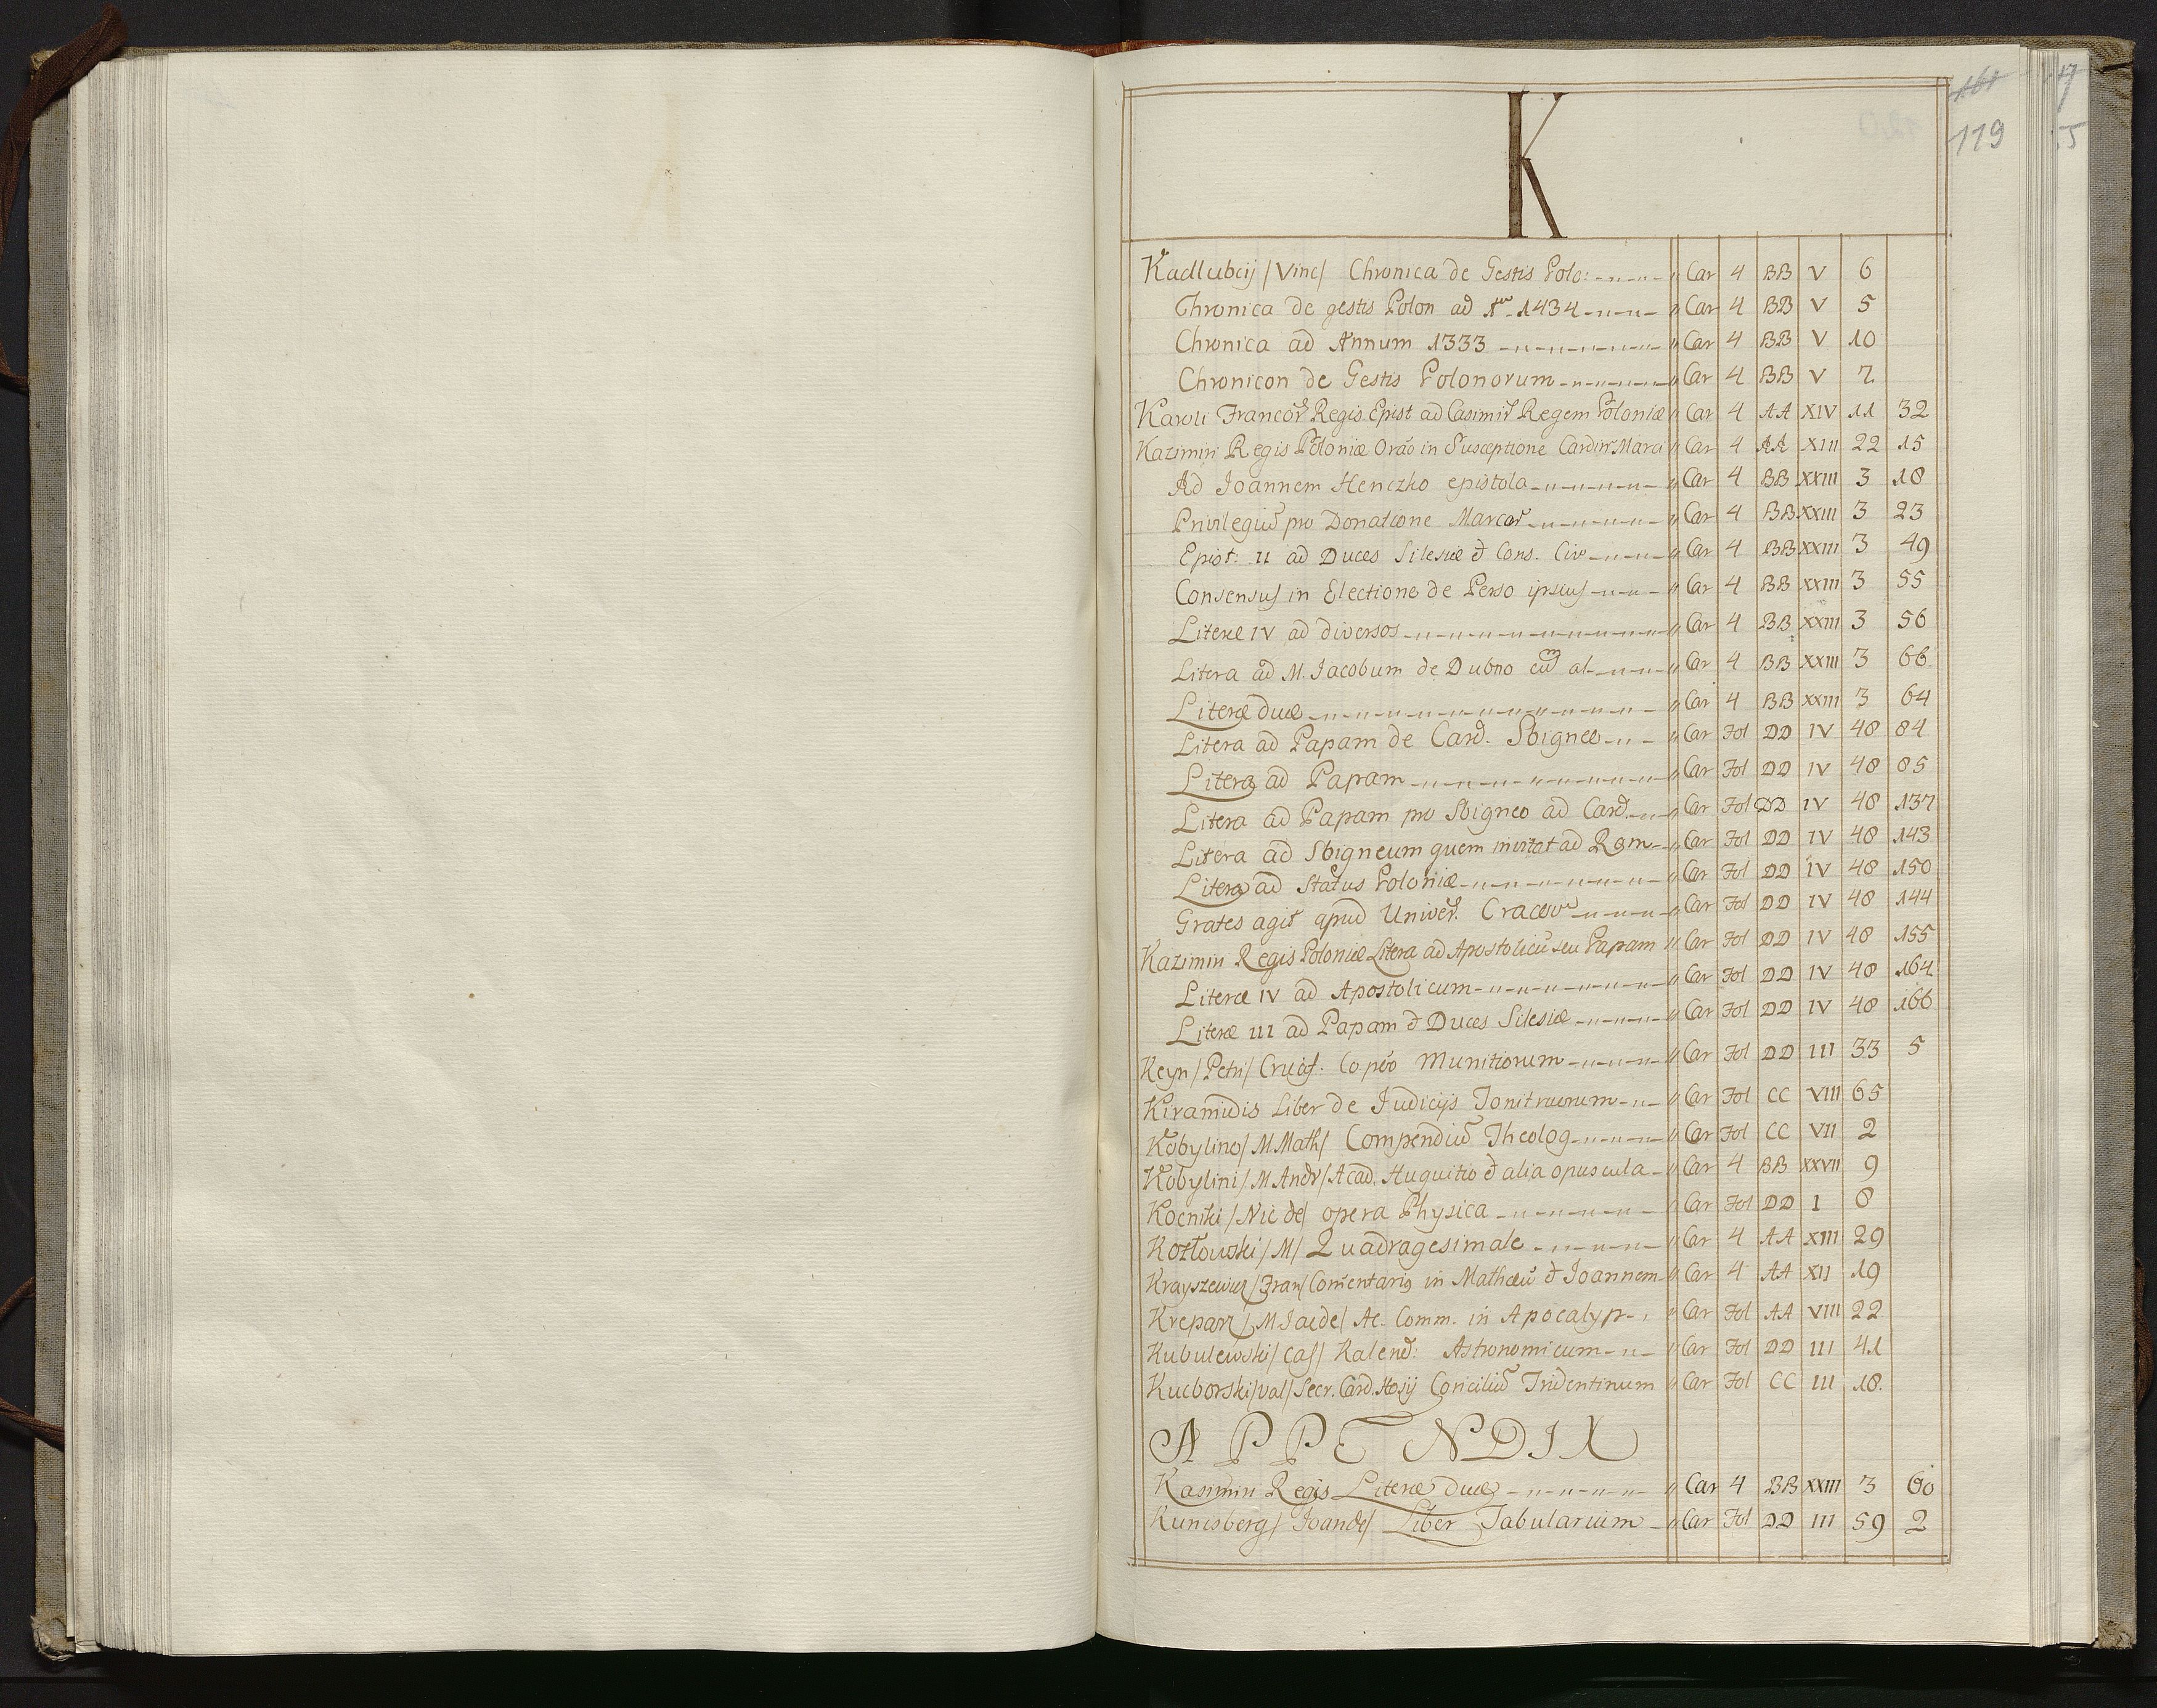 161
119
17
5
K
Kadlubcij /Vinc/ Chronica de Gestis Polo: Car 4 BB V 6
Chronica de gestis Polon ad Aⁿ 1434 Car 4 BB V 5
Chronica ad Annum 1333 Car 4 BB V 10
Chronicon de Gestis Polonorum Car 4 BB V 7
Karoli Francor̃ Regis Epist ad Casimir̃ Regem Poloniæ Car 4 AA XIV 11 32
Kazimiri Regis Poloniæ Orão in Susceptione Cardin̄ Marci Car 4 AA XIII 22 15
Ad Joannem Henczko epistola Car 4 BB XXIII 3 18
Privilegiũ pro Donatione Marcar̃ Car 4 BB XXIII 3 23
Epist: II ad Duces Silesiæ & Cons. Civ Car 4 BB XXIII 3 49
Consensus in Electione de Perso ipsius Car 4 BB XXIII 3 55
Literæ IV ad diversos Car 4 BB XXIII 3 56
Litera ad M. Jacobum de Dubno cũ al Car 4 BB XXIII 3 66
Literæ duæ Car 4 BB XXIII 3 64
Litera ad Papam de Card. Sbigneo Car Fol DD IV 48 84
Litera ad Papam Car Fol DD IV 48 85
Litera ad Papam pro Sbigneo ad Card Car Fol DD IV 48 137
Litera ad Sbigneum quem invitat ad Rom Car Fol DD IV 48 143
Litera ad Status Poloniæ Car Fol DD IV 48 150
Grates agit apud Univer̃. Cracov Car Fol DD IV 48 144
Kazimiri Regis Poloniæ Litera ad Apostolicũ seu Papam Car Fol DD IV 48 155
Literæ IV ad Apostolicum Car Fol DD IV 48 164
Literæ III ad Papam & Duces Silesiæ Car Fol DD IV 48 166
Keyn /Petri/ Crucif. Co põo Munitiorum Car Fol DD III 33 5
Kiramidis Liber de Judicijs Tonitruorum Car Fol CC VIII 65
Kobylino/ M Math/ Compendiũ Theolog Car Fol CC VII 2
Kobylini/ M Andr/ Acad. Huguitio & alia opuscula Car 4 BB XXVII 9
Kocniki /Nic de/ opera Physica Car Fol DD I 8
Kozłowski /M/ Quadragesimale Car 4 AA XIII 29
Krayszewicz /Fran/ Comentarig in Mathæũ & Joannem Car 4 AA XII 19
Krepanz /M Jac de/ Ac. Comm. in Apocalyp Car Fol AA VIII 22
Kubulewski/ Cas/ Kalend: Astronomicum Car Fol DD III 41
Kucborski/Val/ Secr. Card. Hosij Conciliũ Tridentinum Car Fol CC III 18.
APPENDIX
Kasimiri Regis Literæ duæ Car 4 BB XXIII 3 60
Kunisberg/ Joan de/ Liber Tabularium Car Fol DD III 59 2